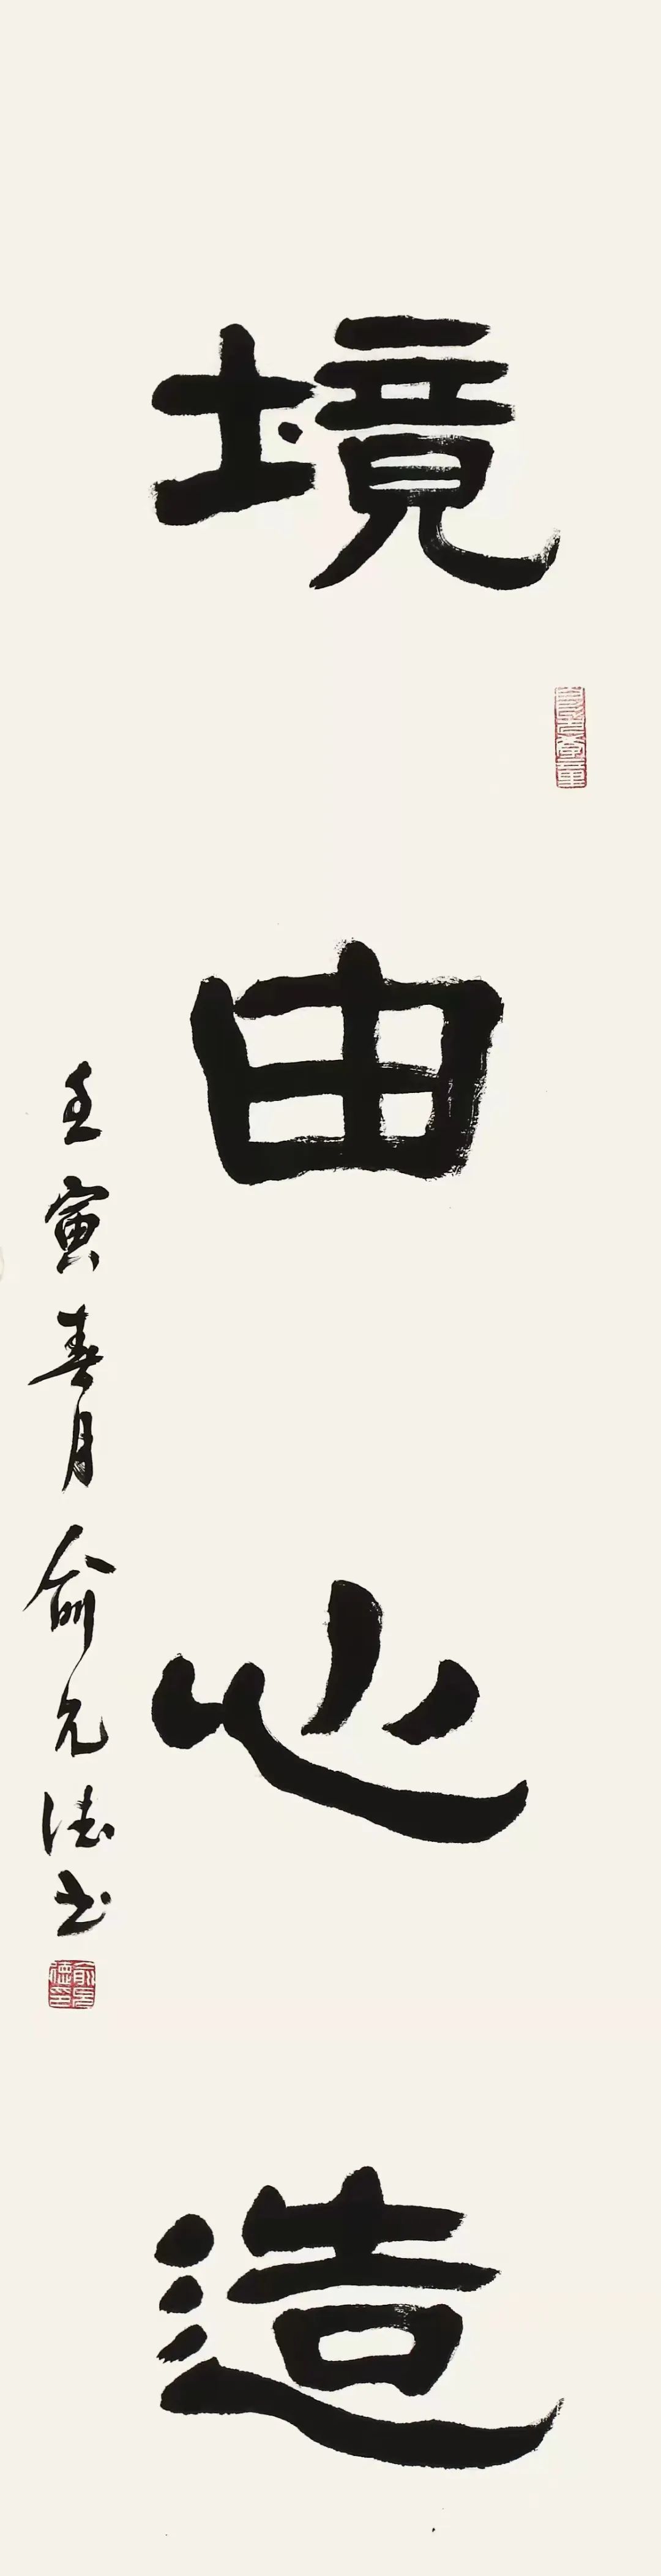 境由心造
壬寅春月俞元德书